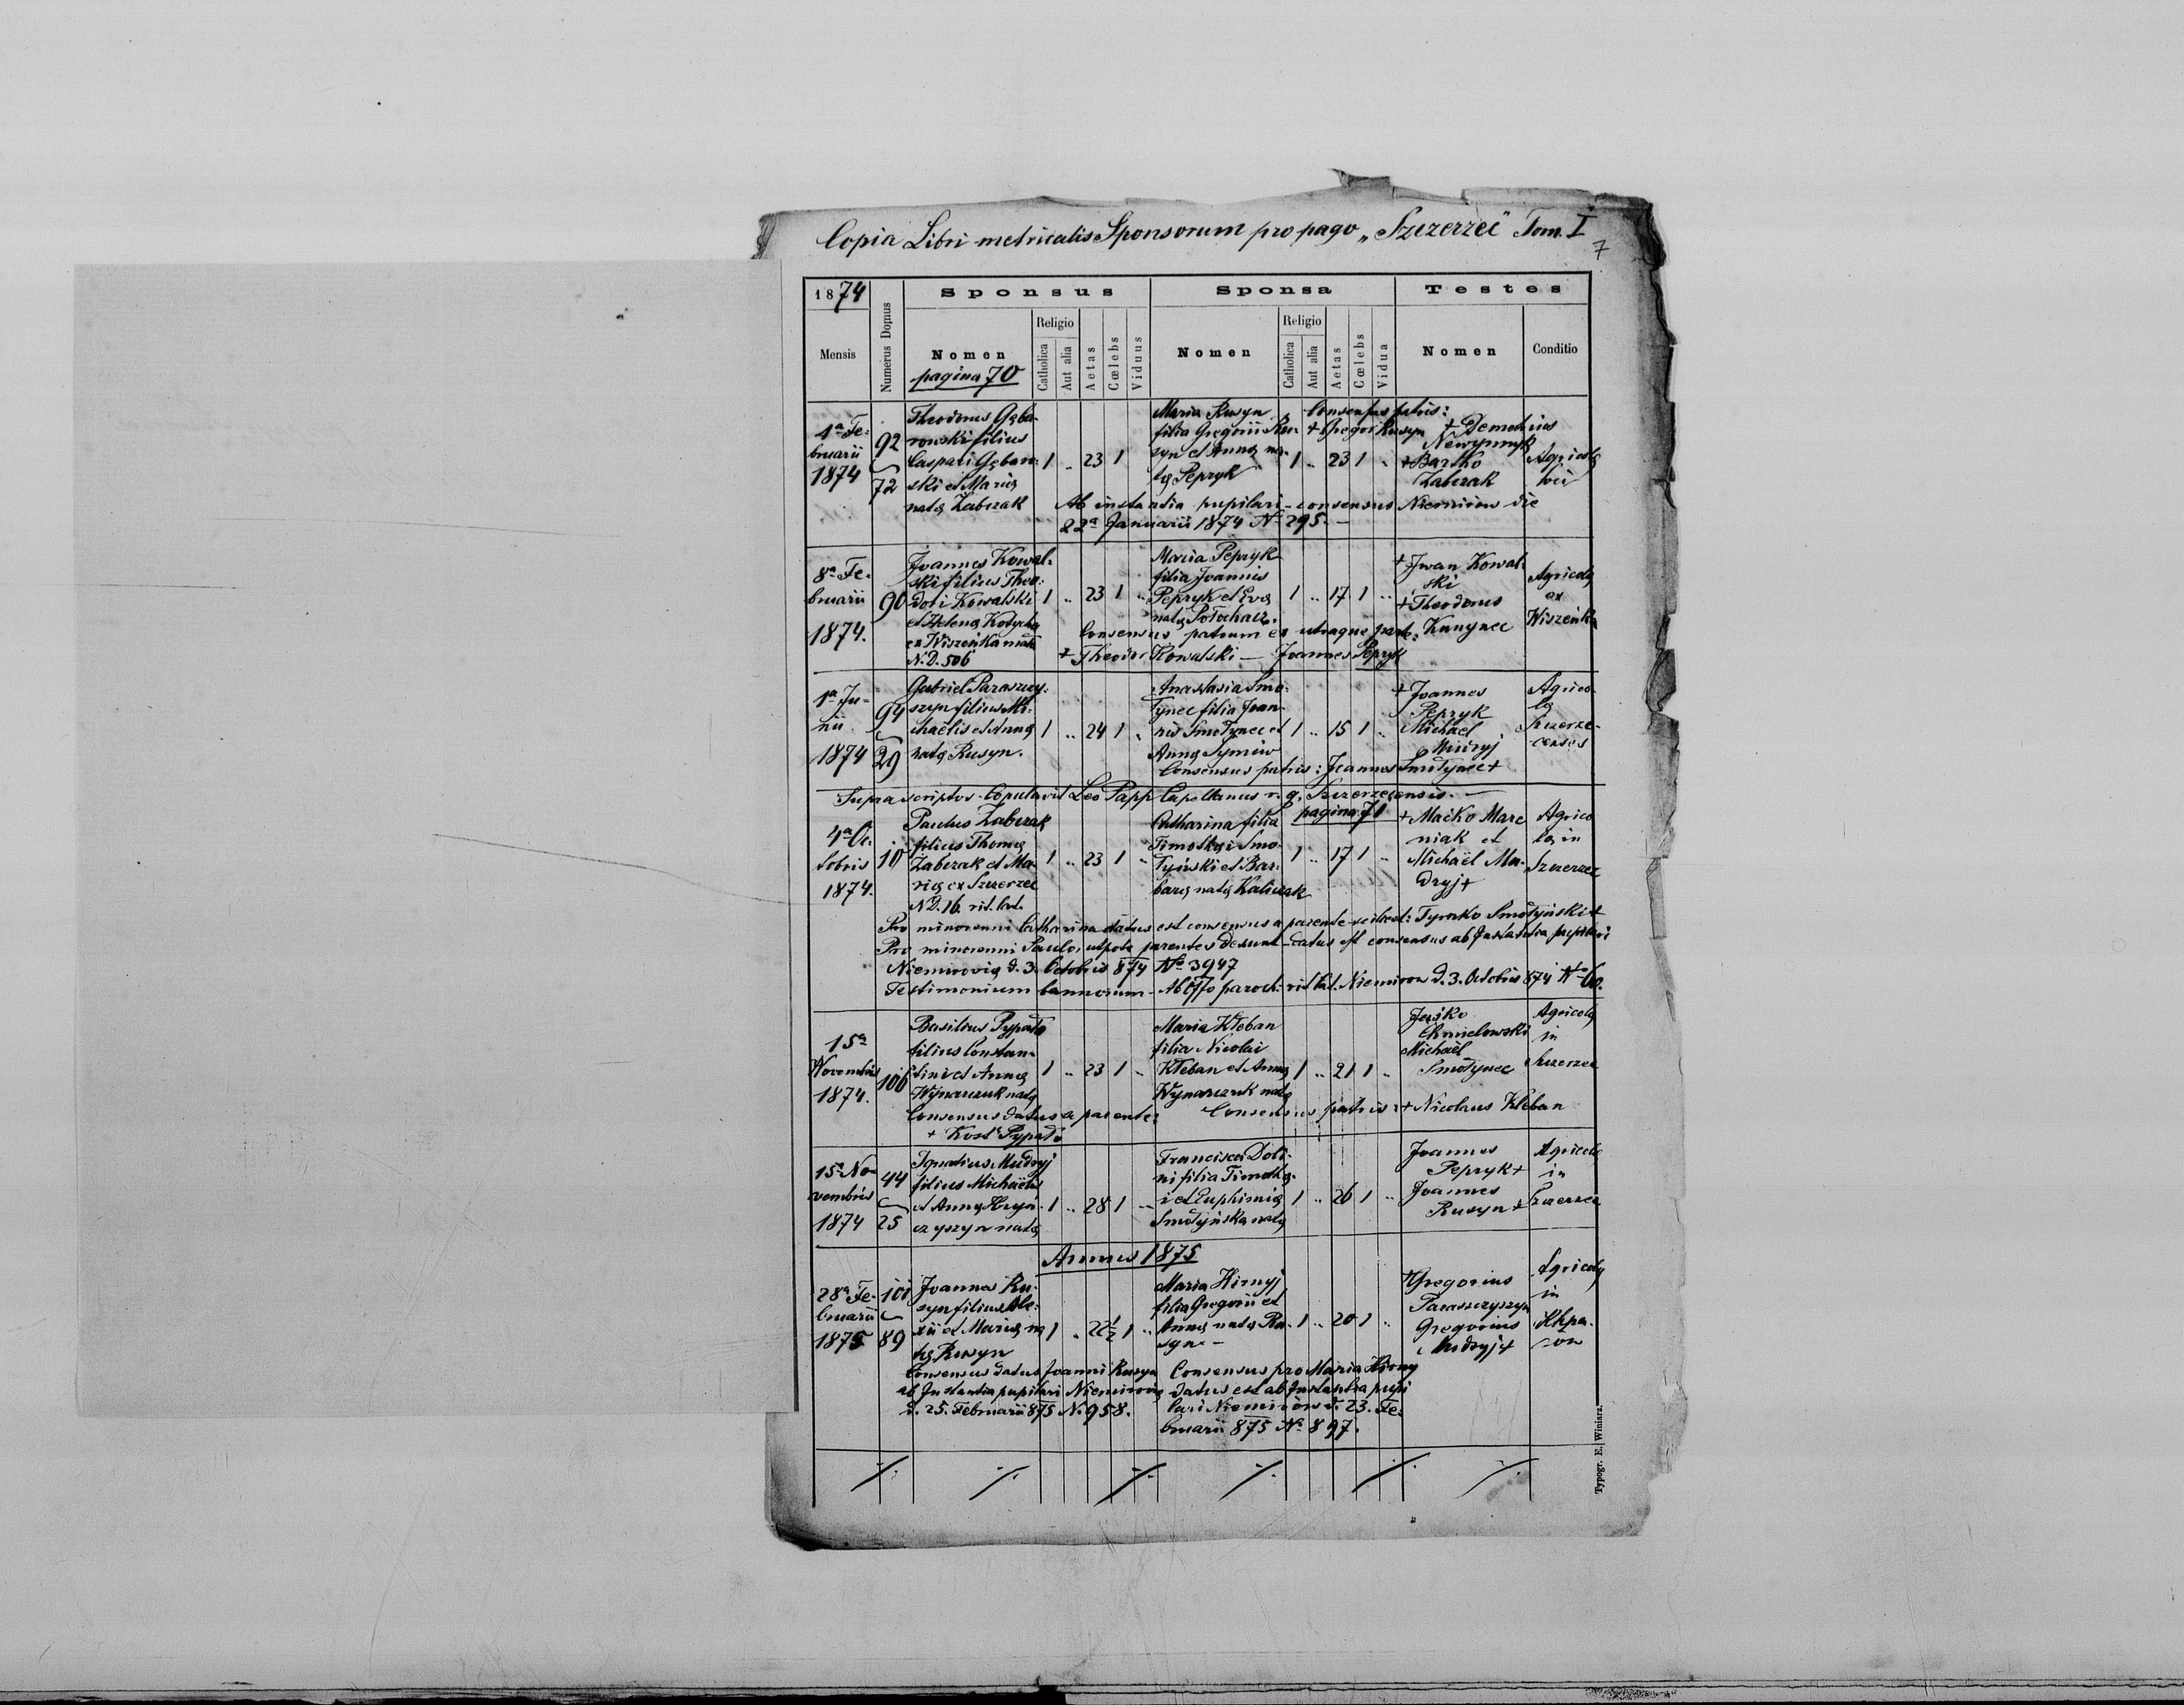 Copia Libri metricalis Sponsorum pro pago „Szczerzec" Tom. I
7
1874
Sponsus
Sponsa
Testes
Mensis
Numerus Domus
Nomen
pagina 70
Religio
Catholica
Aut alia
Aetas
Cœlebs
Viduus
Nomen
Religio
Catholica
Aut alia
Aetas
Cœlebs
Vidua
Nomen
Conditio
1ª Fe-
bruarii
1874
92
72
Theodorus Gęba-
rowski filius
Caspari Gębarow-
ski et Mariæ
natæ Zabczak
1 .. 23 1
Maria Rusyn
filia Gregorii Ru-
syn et Annæ na-
tæ Pepryk
1 .. 23 1 ..
Consensus patris:
+ Gregor Rusyn
+ Demetrius
+ Bartko
Zabczak
Agricolæ
Ab instantia pupilari - consensus Niemirow die
22ª Januarii 1874 Nº 295. —
8ª Fe-
bruarii
1874.
90
Joannes Kowal-
ski filius Theo-
dori Kowalski
et Helenæ
ex Wiszeńka
N. D. 506
1 .. 23 1 ..
Maria Pepryk
filia Joannis
Pepryk et Evæ
natæ
1 .. 17 1 ..
+ Iwan Kowal-
ski
+ Theodorus
Kunynec
Agricolæ
ex
Wiszeńka
Consensus patrum ex utraque parte:
+ Theodor Kowalski — Joannes Pepryk
1ª Ju-
nii
1874
94
29
Gabriel Paraszczy-
szyn filius Mi-
chaëlis et Annæ
natæ Rusyn.
1 .. 24 1 ..
Anastasia Smo-
łynec filia Joan-
nis Smołynec et
Annæ Symiw
1 .. 15 1 ..
+ Joannes
Pepryk
Michael
Mudryj
Agrico-
læ
Szczerze-
censes
Consensus patris: Joannes Smołynec +
Supra scriptos Copulavit Leo Papp Capellanus r. g. Szczerzecensis. —
pagina 71
4ª Oc-
tobris
1874.
10
Paulus Zabczak
filius Thomæ
Zabczak et Ma-
riæ ex Szczerzec
N D. 16 rit. lat.
1 .. 23 1 ..
Catharina filia
Timothæi Smo-
łyński et Bar-
baræ natæ Kaliczak
1 .. 17 1 ..
+ Maćko Marc
niak et
Michaël Mu-
dryj +
Agrico
læ in
Szczerzec
Pro minorenni Catharina datus est consensus a parente scilicet: Tymko Smołyński +
Pro minorenni Paulo, utpote parentes desunt - datus est consensus ab Instantia pupilari
Niemirovia d. 3. Octobris 874 Nº 3947
Testimonium bannorum - Ab Offo paroch. rit. lat. Niemirow d. 3. Octobris 874 Nº 60.
15ª
Novembris
1874.
106
Basilius Pypało
filius Constan-
tini et Annæ
Wynarczuk natæ
1 .. 23 1 ..
Maria Kłeban
filia Nicolai
Kłeban et Annæ
Wynarczuk natæ
1 .. 21 1 ..
Jaśko
Chmielowski
Michaël
Smołynec
Agricolæ
in
Szczerzec
Consensus datus a parente:
+ Kost' Pypało
Consensus patris: + Nicolaus Kłeban
15ª No-
vembris
1874
44
25
Ignatius Mudryj
filius Michaëlis
et Annæ Hryń-
czyszyn natæ
1 .. 28 1 ..
Francisca Doli-
ni filia Timothæ-
i et Euphimiæ
Smołyńska natæ
1 .. 26 1 ..
Joannes
Pepryk +
Joannes
Rusyn +
Agricolæ
in
Szczerzec
Annus 1875
28ª Fe-
bruarii
1875
101
89
Joannes Ru-
syn filius Ale-
xii et Mariæ na
tæ Rusyn
1 .. 22½ 1 ..
Maria Hirnyj
filia Gregorii et
Annæ natæ Ru-
syn -
1 .. 20 1 ..
+ Gregorius
Paraszczyszyn
Gregorius
Mudryj +
Agricolæ
in
Consensus datus Joanni Rusyn
ab Instantia pupilari Niemirovia
d. 25. Februarii 875 N. 958.
Consensus pro Maria Hirny
datus est ab Instantia pupi
lari Niemirów d. 23. Fe-
bruarii 875 Nº 897.
Typogr. E. Winiarz.